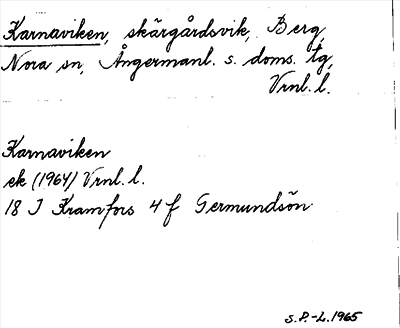 Karnaviken, skärgårdsvik, Berg,
Nora sn, Ångermanl. s. doms. tg,
Vrnl. l.
Karnaviken
ek (1964) Vrnl. l.
18 J Kramfors 4 f Germundsön
S.P.-L. 1965